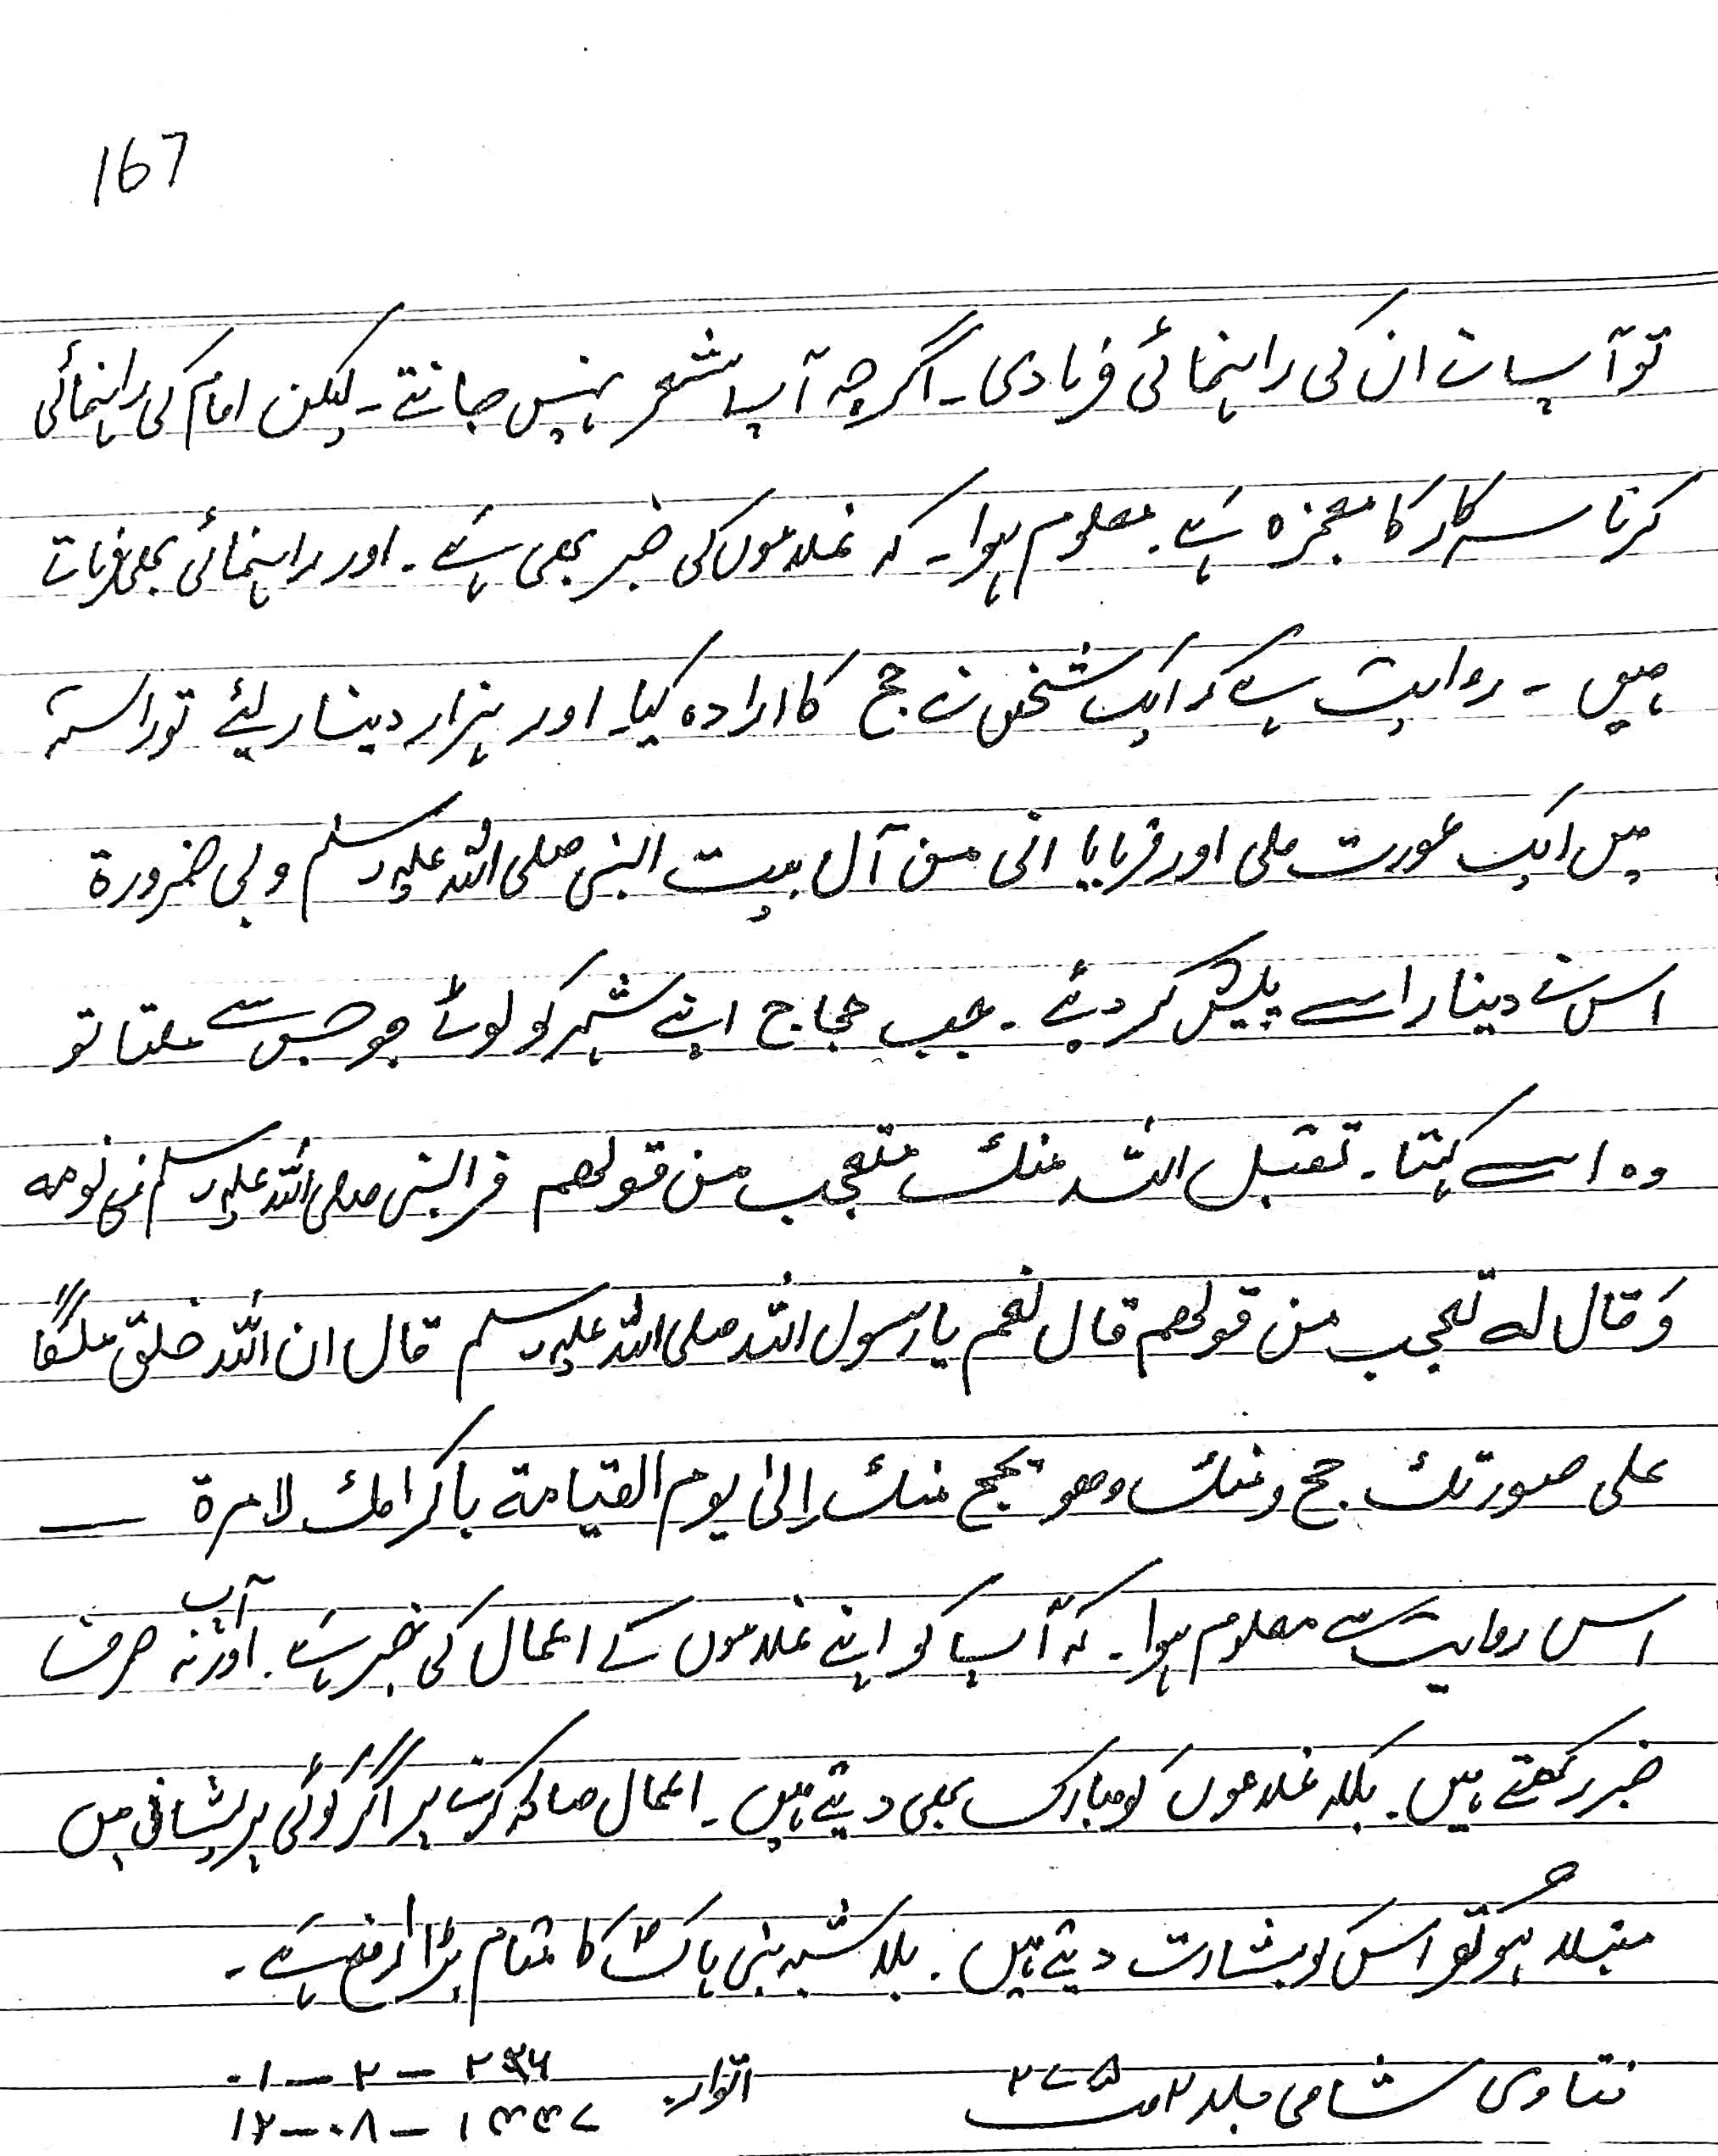 167
تو آپ نے ان کی راہنمائی فرما دی۔ اگرچہ آپ شعر نہیں جانتے۔ لیکن امام کی راہنمائی
کرنا سرکار کا معجزہ ہے۔ معلوم ہوا۔ کہ غلاموں کی خبر بھی ہے۔ اور راہنمائی بھی فرماتے
ہیں ۔ روایت ہے کہ ایک شخص نے حج کا ارادہ کیا۔ اور ہزار دینار لیئے تو راستہ
میں ایک عورت ملی اور فرمایا انی من آل بیت النبی صلی اللہ علیہ وسلم و بی ضرورة
اس نے دینار اسے پیش کر دیئے ۔ جب حجاج اپنے شہر کو لوٹے جو جس سے ملتا تو
وہ اسے کہتا۔ تقبل اللہ منك متعجب من قولھم فرالنبی صلی اللہ علیہ وسلم فی نومه
وَقال له تعجب من قولھم قال نعم یا رسول اللہ صلی اللہ علیہ وسلم قال ان اللہ خلق ملکًا
علی صورتك حج عنك وھو یحج عنك اِلیٰ یوم القیامة باکرامك لامرة —
اس روایت سے معلوم ہوا۔ کہ آپ کو اپنے غلاموں کے اعمال کی خبر ہے۔ اور آپ نہ صرف
خبر رکھتے ہیں۔ بلکہ غلاموں کو مبارک بھی دیتے ہیں۔ اعمال صالحہ کرنے پر اگر کوئی پریشانی میں
مبتلا ہو تو اس کو بشارت دیتے ہیں۔ بلا شبہ نبی پاک ؐ کا مقام بڑا ارفع ہے۔
فتاوی شامی جلد ۲ ص ۲۷۵ اتوار ۰۱ — ۲ —
۱۲ — ۰۸ — ۱۳۳۷